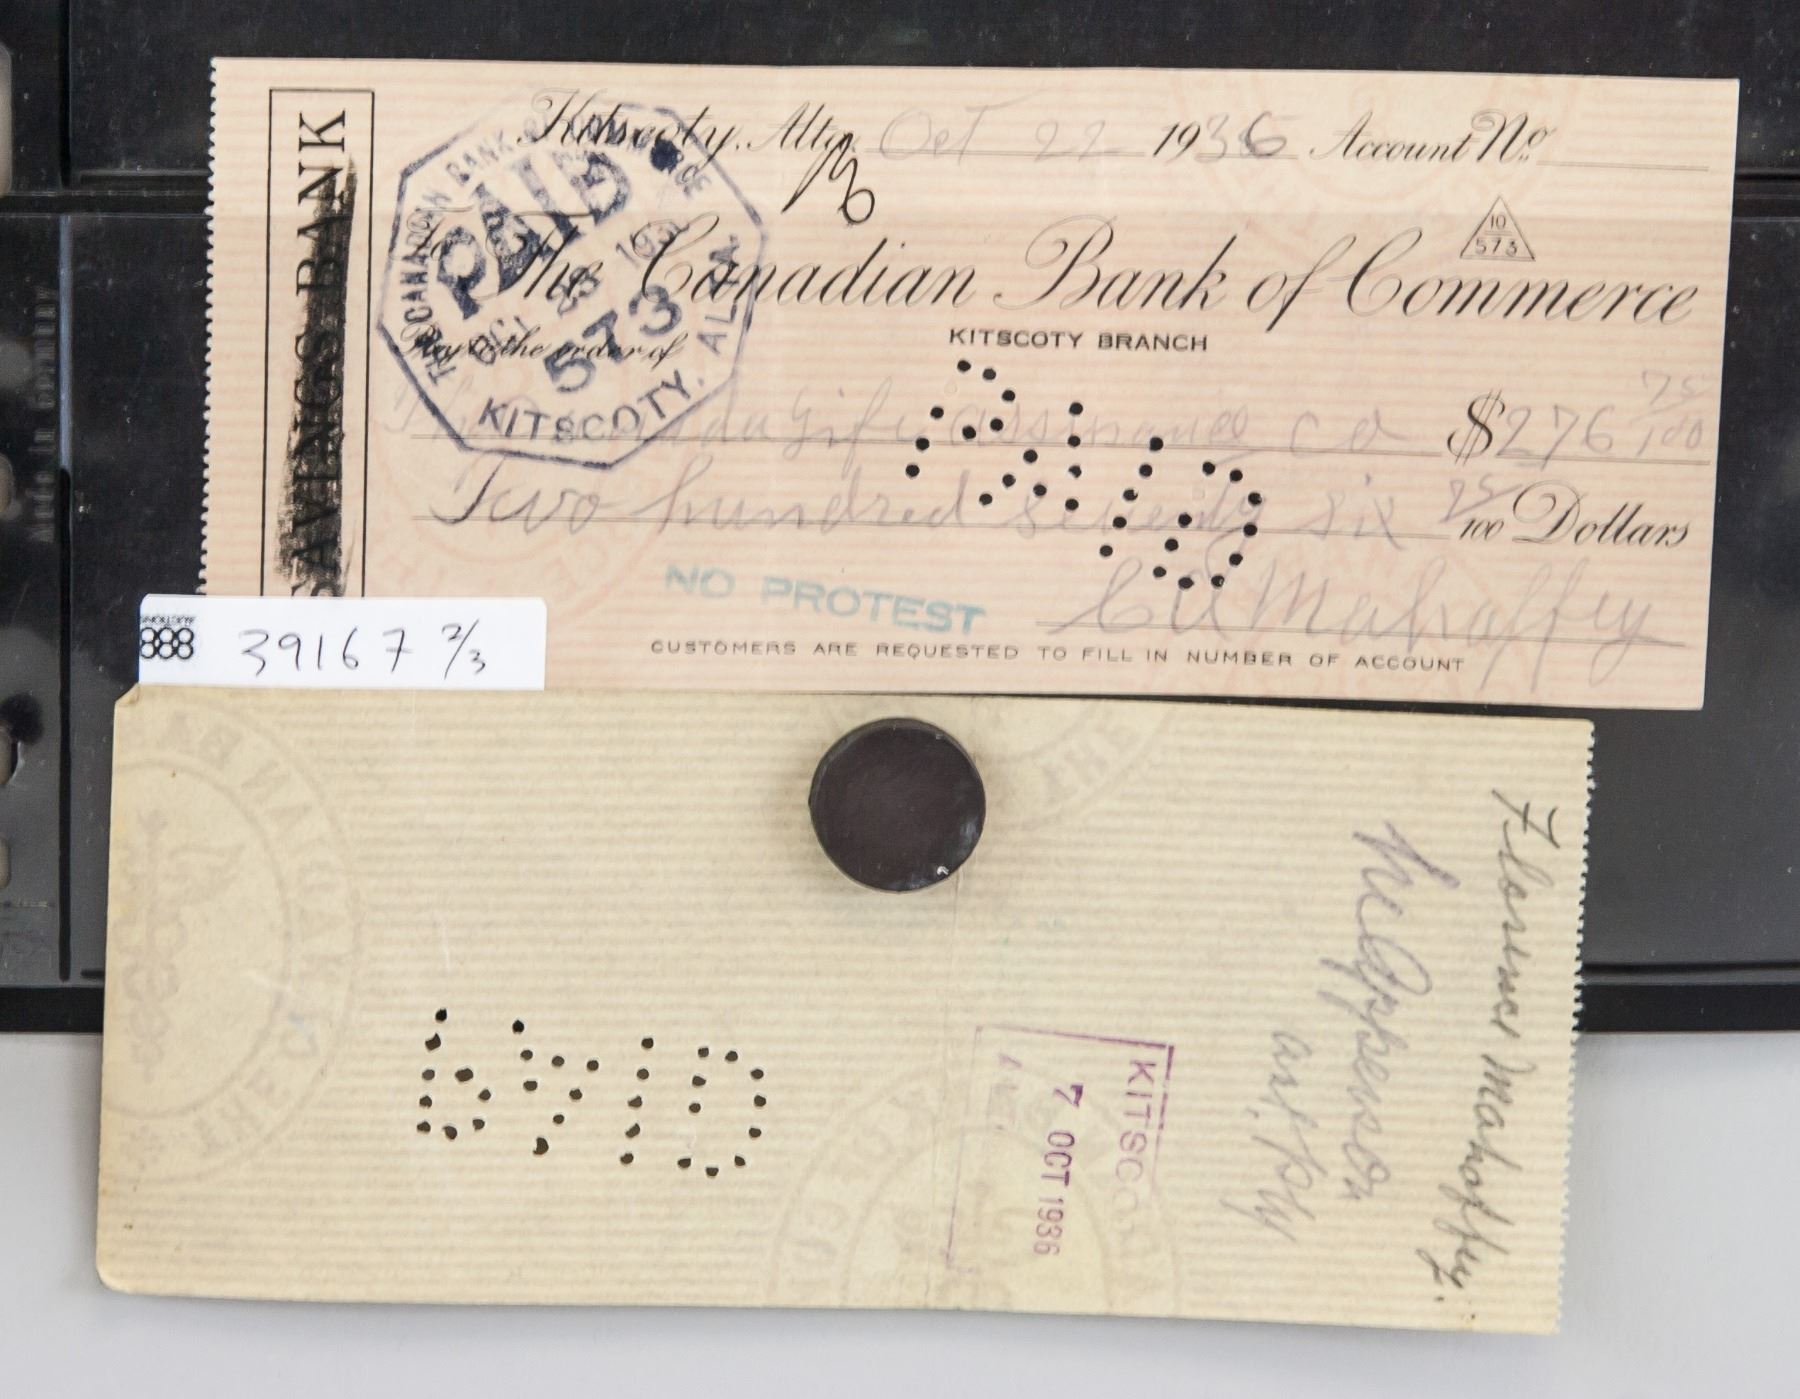 SAVINGS BANK
Kitscoty, Alta. Oct 22 1936 Account No.
10
573
The Canadian Bank of Commerce
KITSCOTY BRANCH
THE CANADIAN BANK OF COMMERCE
PAID
OCT 23 1936
573
KITSCOTY, ALTA.
Pay to the order of
The Canada Life Assurance Co $276 75/100
Two hundred seventy six 75/100 Dollars
NO PROTEST
C A Mahaffey
CUSTOMERS ARE REQUESTED TO FILL IN NUMBER OF ACCOUNT
888 AUCTIONS
39167 2/3
Florence Mahaffey.
KITSCOTY
7 OCT 1936
ALTA.